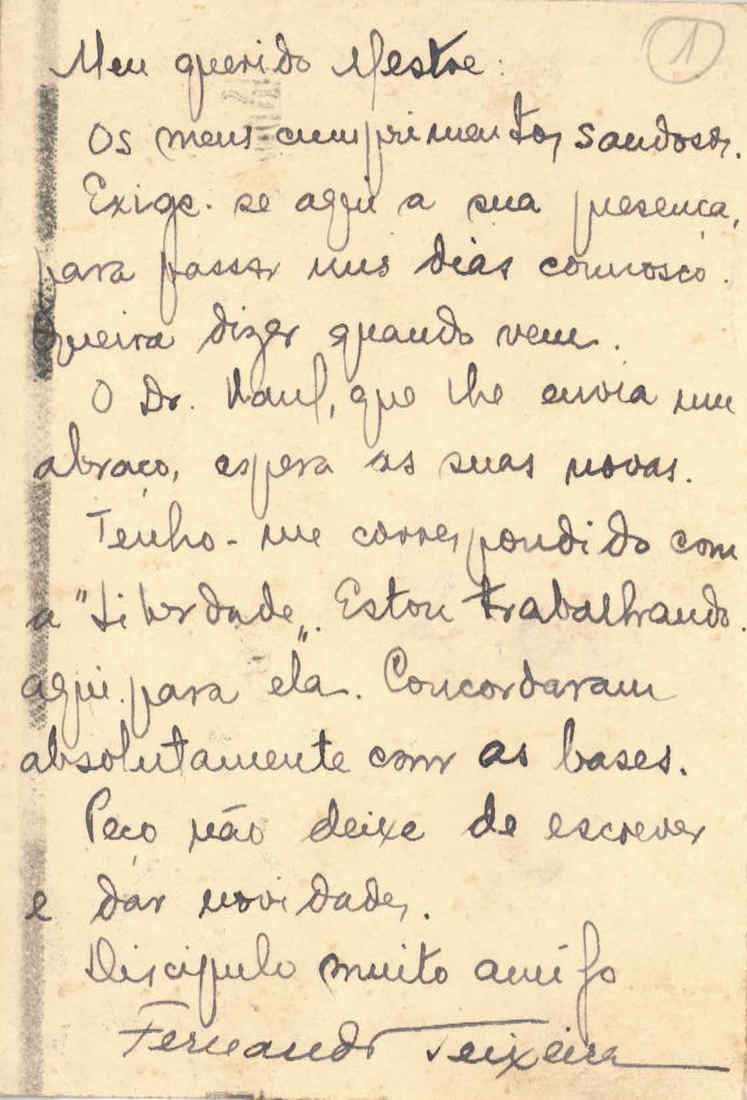 1
Meu querido Mestre:
Os meus cumprimentos saudosos.
Exige-se aqui a sua presença,
para passar uns dias connosco.
Queira dizer quando vem.
O Dr. Raul, que lhe envia um
abraço, espera as suas novas.
Tenho-me correspondido com
a "Liberdade". Estou trabalhando
aqui para ela. Concordaram
absolutamente com as bases.
Peço não deixe de escrever
e dar novidades.
Discipulo muito amigo
Fernando Teixeira